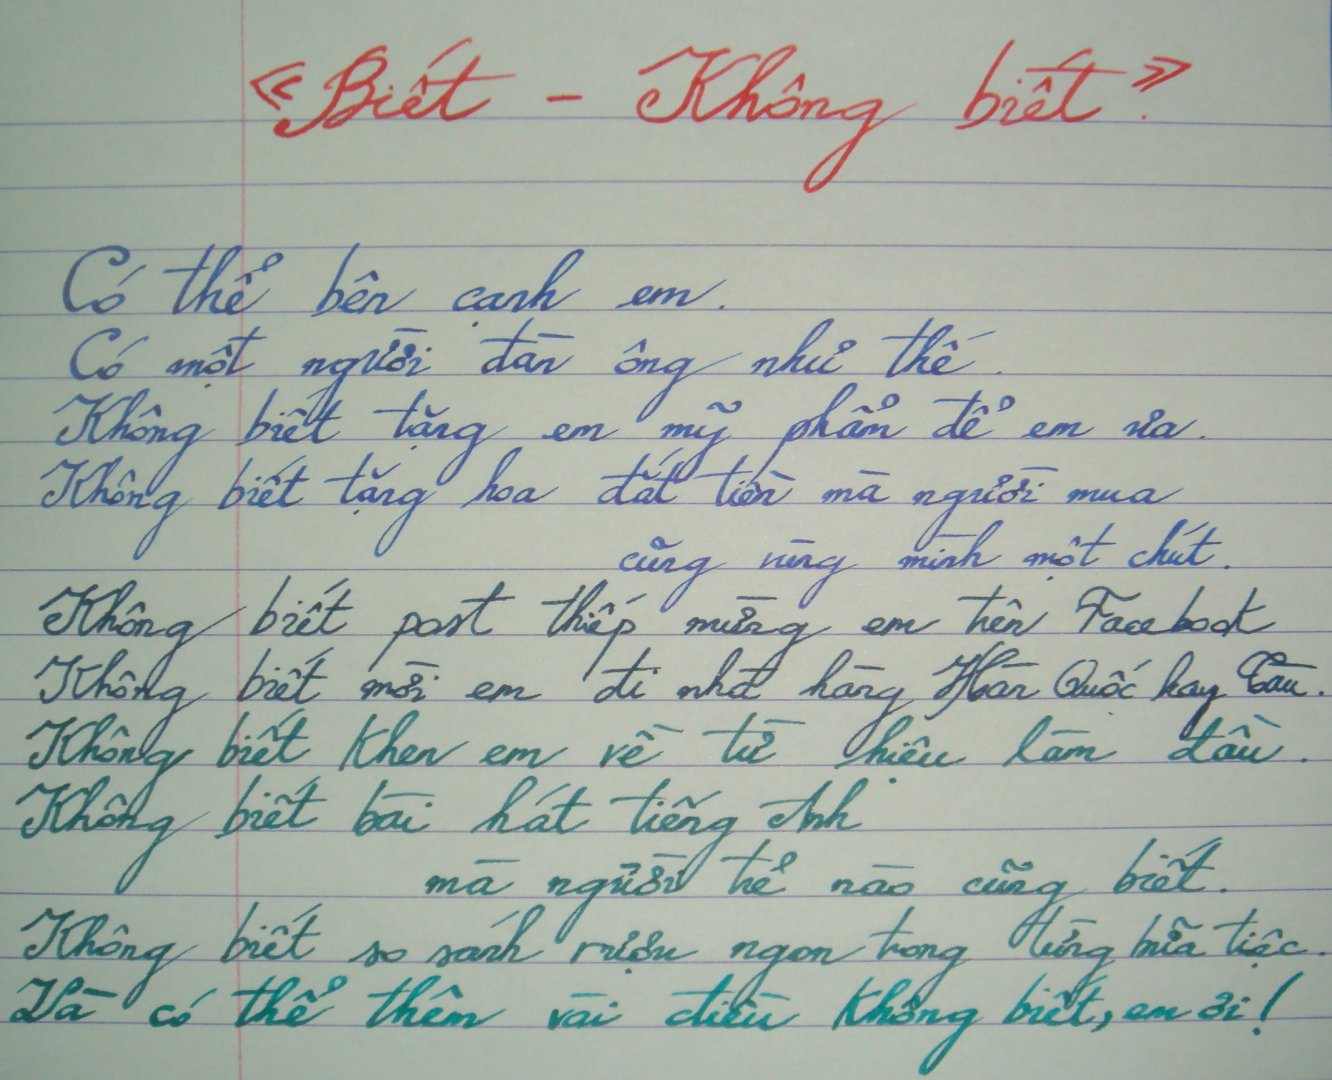 «Biết - Không biết».
Có thể bên cạnh em.
Có một người đàn ông như thế.
Không biết tặng em mỹ phẩm để em ưa.
Không biết tặng hoa đắt tiền mà người mua
cũng rùng mình một chút.
Không biết post thiếp mừng em trên Facebook
Không biết mời em đi nhà hàng Hàn Quốc hay Tàu.
Không biết khen em về từ hiệu làm đầu.
Không biết bài hát tiếng Anh
mà người trẻ nào cũng biết.
Không biết so sánh rượu ngon trong từng bữa tiệc.
Và có thể thêm vài điều không biết, em ơi!